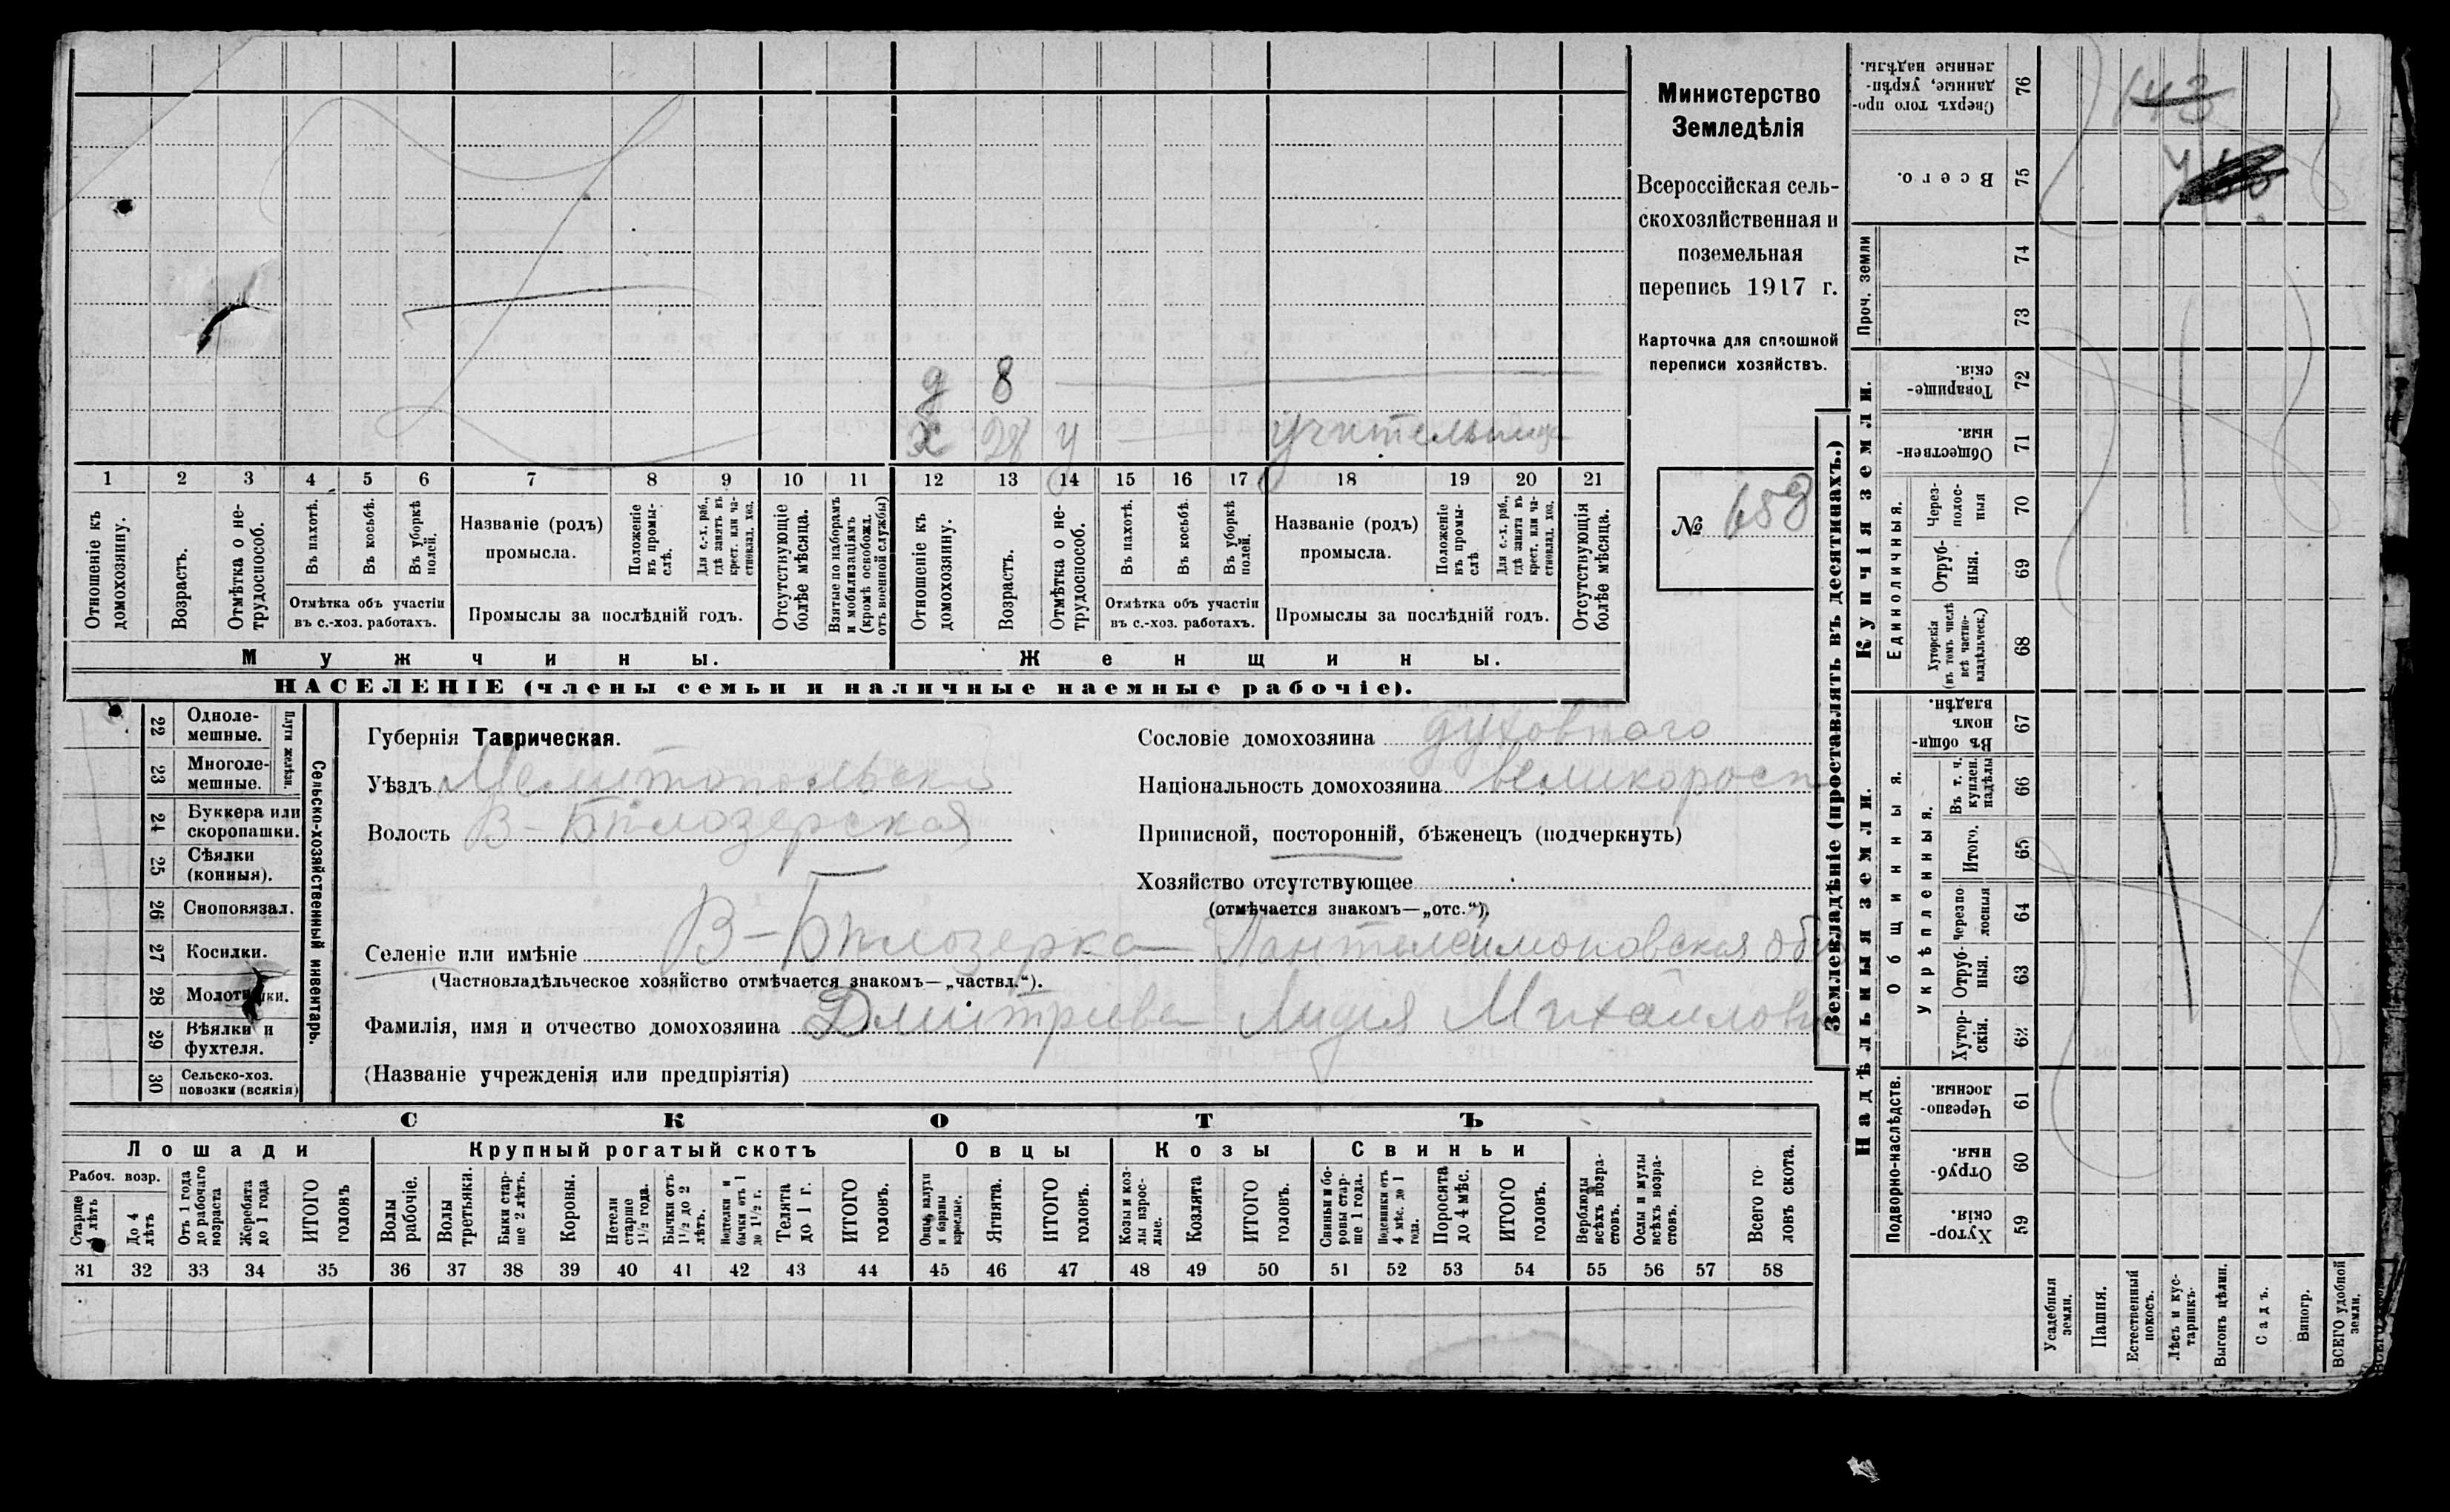 Министерство
Земледѣлія
Всероссійская сель-
скохозяйственная и
поземельная
перепись 1917 г.
Карточка для сплошной
переписи хозяйствъ.
№ 658
д 8
х 28 у учительница
1 2 3 4 5 6 7 8 9 10 11 12 13 14 15 16 17 18 19 20 21
Отношеніе къ домохозяину.
Возрастъ.
Отмѣтка о не-трудоспособ.
Въ пахотѣ.
Въ косьбѣ.
Въ уборкѣ полей.
Отмѣтка объ участіи
въ с.-хоз. работахъ.
Названіе (родъ)
промысла.
Положеніе въ промы-слѣ.
Для с.-х. раб., гдѣ занятъ въ крест. или ча-стновлад. хоз.
Промыслы за послѣдній годъ.
Отсутствующіе болѣе мѣсяца.
Взятые по наборамъ и мобилизаціямъ (кромѣ освобожд. отъ военной службы)
Отношеніе къ домохозяину.
Возрастъ.
Отмѣтка о не-трудоспособ.
Въ пахотѣ.
Въ косьбѣ.
Въ уборкѣ полей.
Отмѣтка объ участіи
въ с.-хоз. работахъ.
Названіе (родъ)
промысла.
Положеніе въ промы-слѣ.
Для с.-х. раб., гдѣ занята въ крест. или ча-стновлад. хоз.
Промыслы за послѣдній годъ.
Отсутствующія болѣе мѣсяца.
Мужчины.
Женщины.
НАСЕЛЕНІЕ (члены семьи и наличные наемные рабочіе).
Сельско-хозяйственный инвентарь.
Плуги желѣзн.
22 Одноле-мешные.
23 Многоле-мешные.
24 Буккера или скоропашки.
25 Сѣялки (конныя).
26 Сноповязал.
27 Косилки.
28 Молотилки.
29 Вѣялки и фухтеля.
30 Сельско-хоз. повозки (всякія)
Губернія Таврическая.
Уѣздъ Мелитопольскій
Волость В-Бѣлозерская
Сословіе домохозяина духовного
Національность домохозяина великоросс
Приписной, посторонній, бѣженецъ (подчеркнуть)
Хозяйство отсутствующее
(отмѣчается знакомъ—„отс.“).
Селеніе или имѣніе В-Бѣлозерка Пантелеймоновская об
(Частновладѣльческое хозяйство отмѣчается знакомъ—„частвл.“).
Фамилія, имя и отчество домохозяина Дмитриева Лидія Михайловна
(Названіе учрежденія или предпріятія)
СКОТЪ
Лошади
Крупный рогатый скотъ
Овцы
Козы
Свиньи
Рабоч. возр.
Старше 4 лѣтъ
До 4 лѣтъ
Отъ 1 года до рабочаго возраста
Жеребята до 1 года
ИТОГО головъ
Волы рабочіе.
Волы третьяки.
Быки стар-ше 2 лѣтъ.
Коровы.
Нетели старше 1½ года.
Бычки отъ 1½ до 2 лѣтъ.
Нетелки и бычки отъ 1 до 1½ г.
Телята до 1 г.
ИТОГО головъ.
Овцы, валухи и бараны взрослые.
Ягнята.
ИТОГО головъ.
Козы и коз-лы взрос-лые.
Козлята
ИТОГО головъ.
Свиньи и бо-ровы стар-ше 1 года.
Подсвинки отъ 4 мѣс. до 1 года.
Поросята до 4 мѣс.
ИТОГО головъ.
Верблюды всѣхъ возра-стовъ.
Ослы и мулы всѣхъ возра-стовъ.
Всего го-ловъ скота.
31 32 33 34 35 36 37 38 39 40 41 42 43 44 45 46 47 48 49 50 51 52 53 54 55 56 57 58
Землевладѣніе (проставлять въ десятинахъ.)
Купчія земли.
Надѣльныя земли.
Сверхъ того про-данные, укрѣп-ленные надѣлы. 76
143
Всего. 75
Проч. земли
74
73
Товарище-скія. 72
Обществен-ныя. 71
Единоличныя.
Через-полос-ныя 70
Отруб-ныя. 69
Хуторскія (въ томъ числѣ всѣ частно-владѣльческ.) 68
Общинныя.
Въ общи-номъ владѣн. 67
Укрѣпленныя.
Въ т. ч. куплен. надѣлы 66
Итого. 65
Черезпо лосныя 64
Отруб-ныя. 63
Хутор-скія. 62
Подворно-наслѣдств.
Черезпо-лосныя. 61
Отруб-ныя. 60
Хутор-скія. 59
Усадебныя земли.
Пашня.
Естественный покосъ.
Лѣсъ и кус-тарникъ.
Выгонъ цѣлин.
Садъ.
Виногр.
ВСЕГО удобной земли.